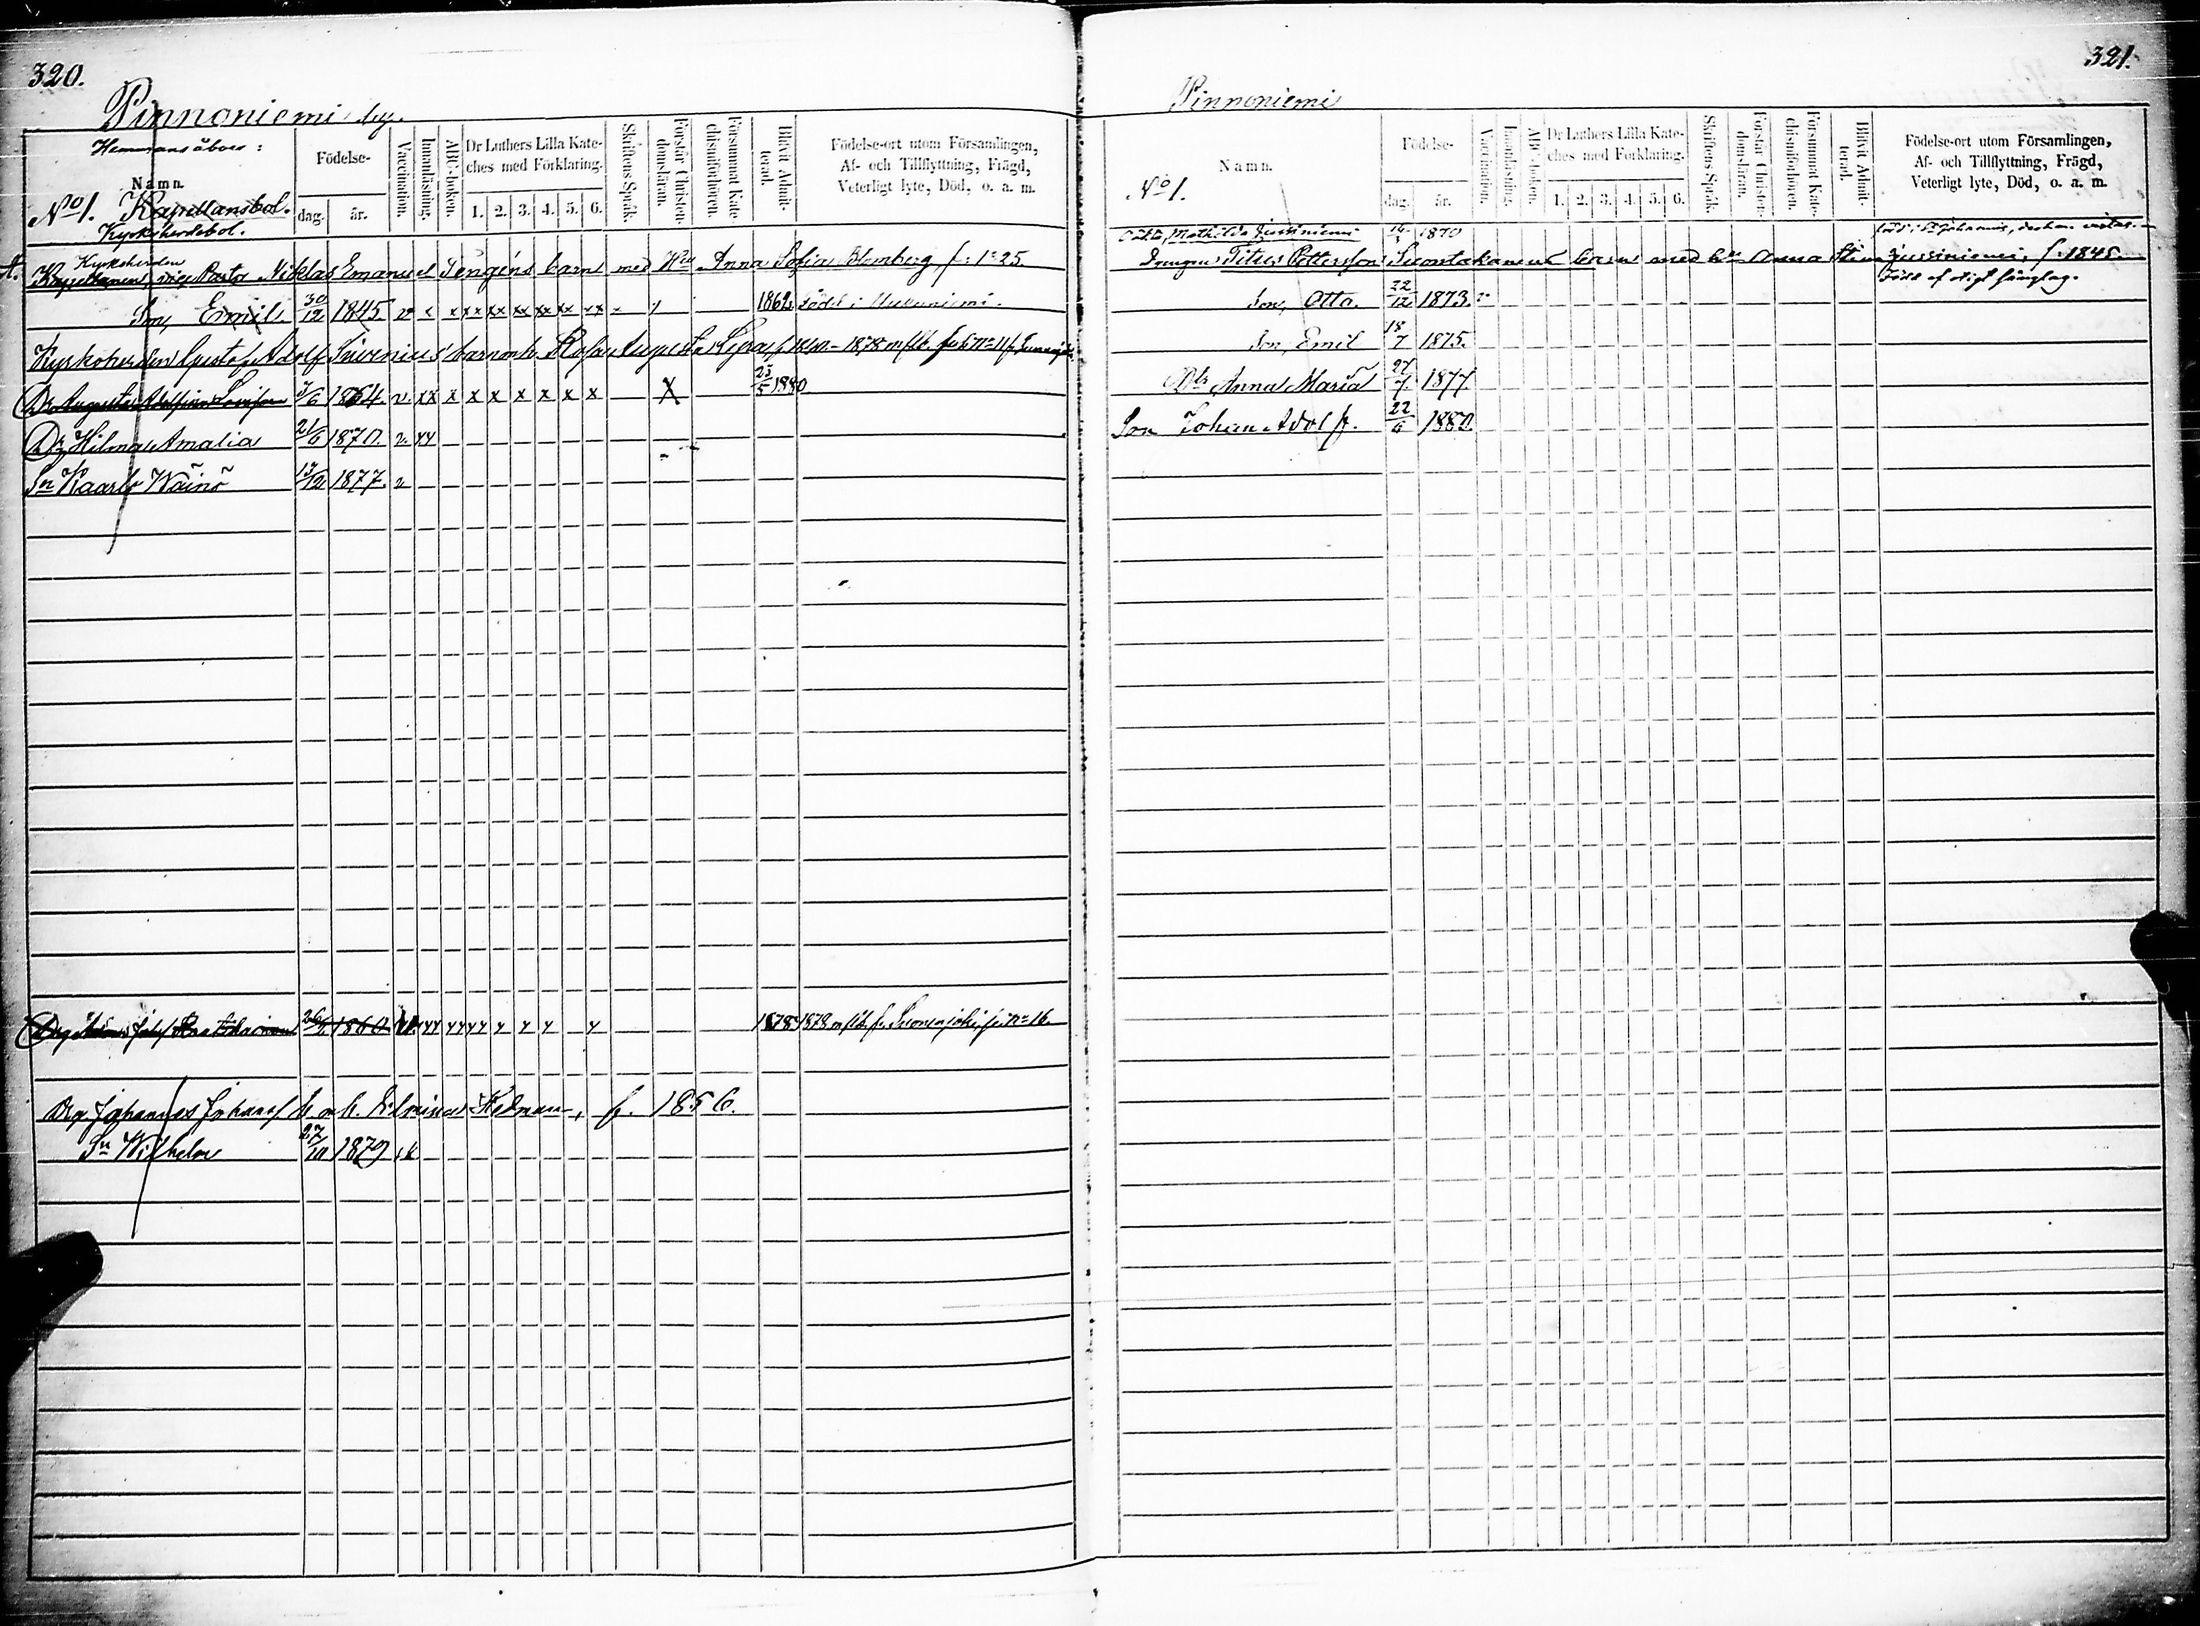 320.
Pinnoniemi by.
Hemmansåboer:
Namn.
No 1. Kapellansbol.
Kyrkoherdebol.
Födelse-
dag. år.
Vaccination.
Innanläsning.
ABC-boken.
Dr Luthers Lilla Kate-
ches med Förklaring.
1. 2. 3. 4. 5. 6.
Skriftens Språk.
Förstår Christen-
domsläran.
Försummat Kate-
chismiförhören.
Blifvit Admit-
terad.
Födelse-ort utom Församlingen,
Af- och Tillflyttning, Frägd,
Veterligt lyte, Död, o. a. m.
Kyrkoherden
Kapellanen, vice Pasto Niklas Emanuel Tengéns barn med Hu Anna Sofia Blomberg f: 1825.
Son, Emil 30/12 1845 v x x x x x x x x x x x 1862. Född i
Kyrkoherden Gustaf Adolf Suvenius' barn m h. Rosa Augusta f. 1878 m fl b. No 11 f.
Dr Augusta Adolfina Lovisa 3/6 1864. v. x x x x x x x x x X 25/5 1880
Dr Hilma Amalia 21/6 1870. v. x x
Sn Kaarlo Wäinö 13/12 1877. v
Drg 26/ 1860 1878 1878 m fl b. fr. No 16.
Drg Johannes Johans b. m h. Elvina Hedman, f. 1856.
Sn Wilhelm 27/10 1879
321.
Pinnoniemi
Namn.
No 1.
Födelse-
dag. år.
Vaccination.
Innanläsning.
ABC-boken.
Dr Luthers Lilla Kate-
ches med Förklaring.
1. 2. 3. 4. 5. 6.
Skriftens Språk.
Förstår Christen-
domsläran.
Försummat Kate-
chismiförhören.
Blifvit Admit-
terad.
Födelse-ort utom Församlingen,
Af- och Tillflyttning, Frägd,
Veterligt lyte, Död, o. a. m.
Mathilda Jussiniemi 1870
Drengen Titus Pettersson Suontakanens barn med hu Anna Stina Jussiniemi, f. 1845.
Son, Otto. 22/12 1873. v
Son, Emil 18/7 1875.
Dtr Anna Maria 27/7 1877
Son Johan Adolf. 22/6 1880.